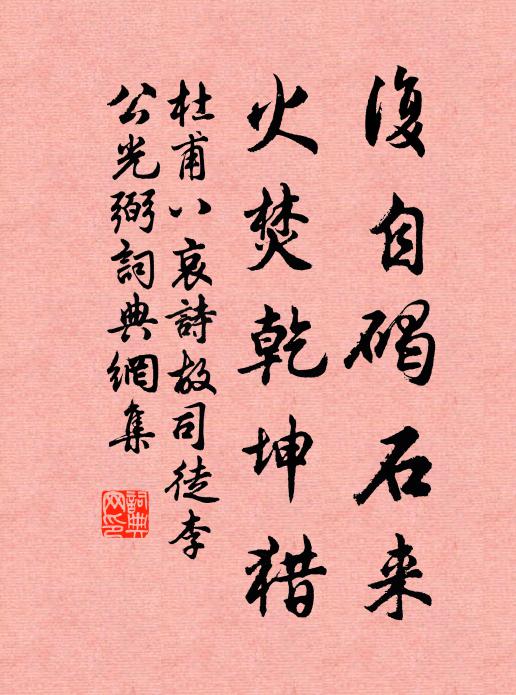 復自碣石来
火焚乾坤猎
杜甫八哀詩故司徒李
公光弼詞典網集
詞典
网印